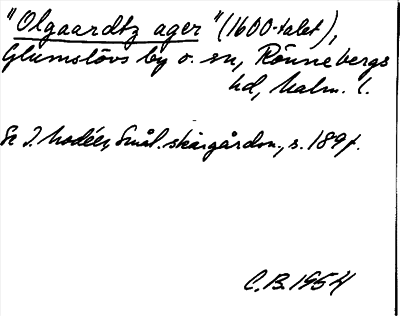 "Olgaardtz ager" (1600-talet),
Glumslövs by o. sn, Rönnebergs
hd, Malm. l.
Se I. Modéer, Smål. skärgårdsn., s. 189 f.
C.B. 1954